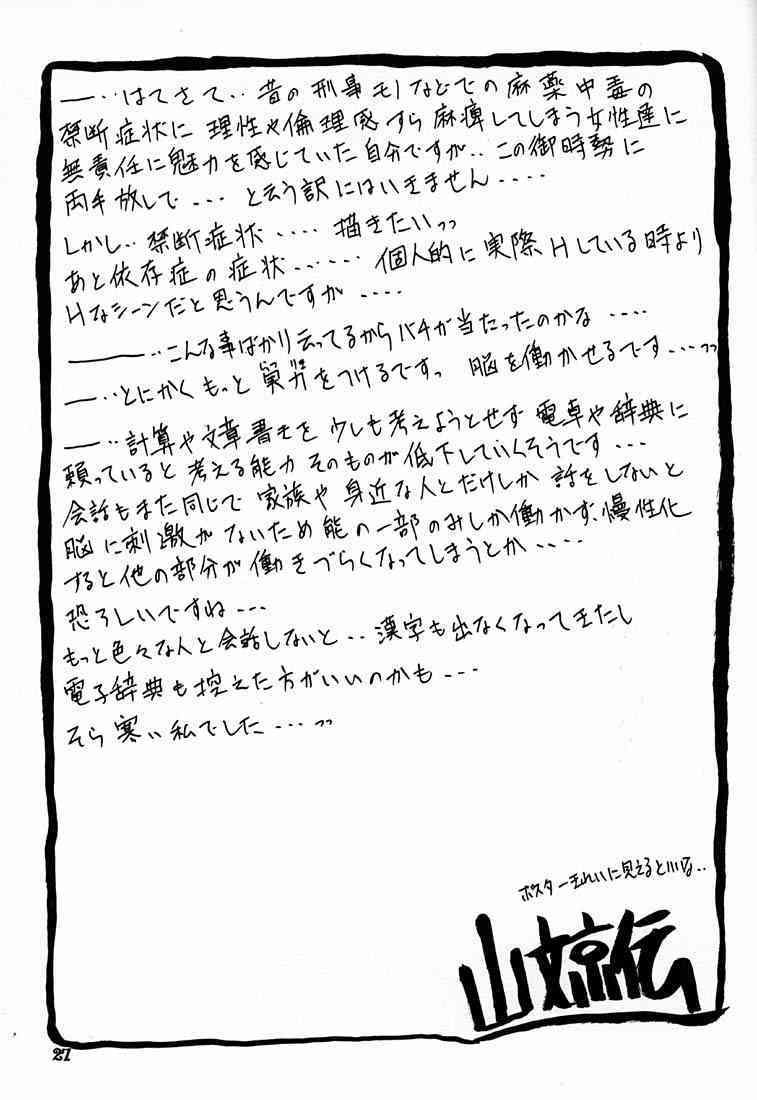 ―‥はてさて‥昔の刑事モノなどでの麻薬中毒の
禁断症状に理性や倫理感すら麻痺してしまう女性達に
無責任に魅力を感じていた自分ですが‥この御時勢に
両手放しで・・・と云う訳にはいきません・・・・
しかし‥禁断症状・・・・描きたいっっ
あと依存症の症状・・・・・・個人的に実際Hしている時より
Hなシーンだと思うんですが・・・・
―――‥こんな事ばかり云ってるからバチが当たったのかな・・・・
―‥とにかくもっとをつけるですっ 脳を働かせるです・・・っっ
―‥計算や文章書きを少しも考えようとせず電卓や辞典に
頼っていると考える能力そのものが低下していくそうです・・・
会話もまた同じで家族や身近な人とだけしか話をしないと
脳に刺激がないため能の一部のみしか働かず、慢性化
すると他の部分が働きづらくなってしまうとか・・・・
恐ろしいですね・・・
もっと色々な人と会話しないと‥漢字も出なくなってきたし
電子辞典も控えた方がいいのかも・・・
そら寒い私でした・・・っっ
ポスターきれいに見えるといいな‥
山文京伝
27